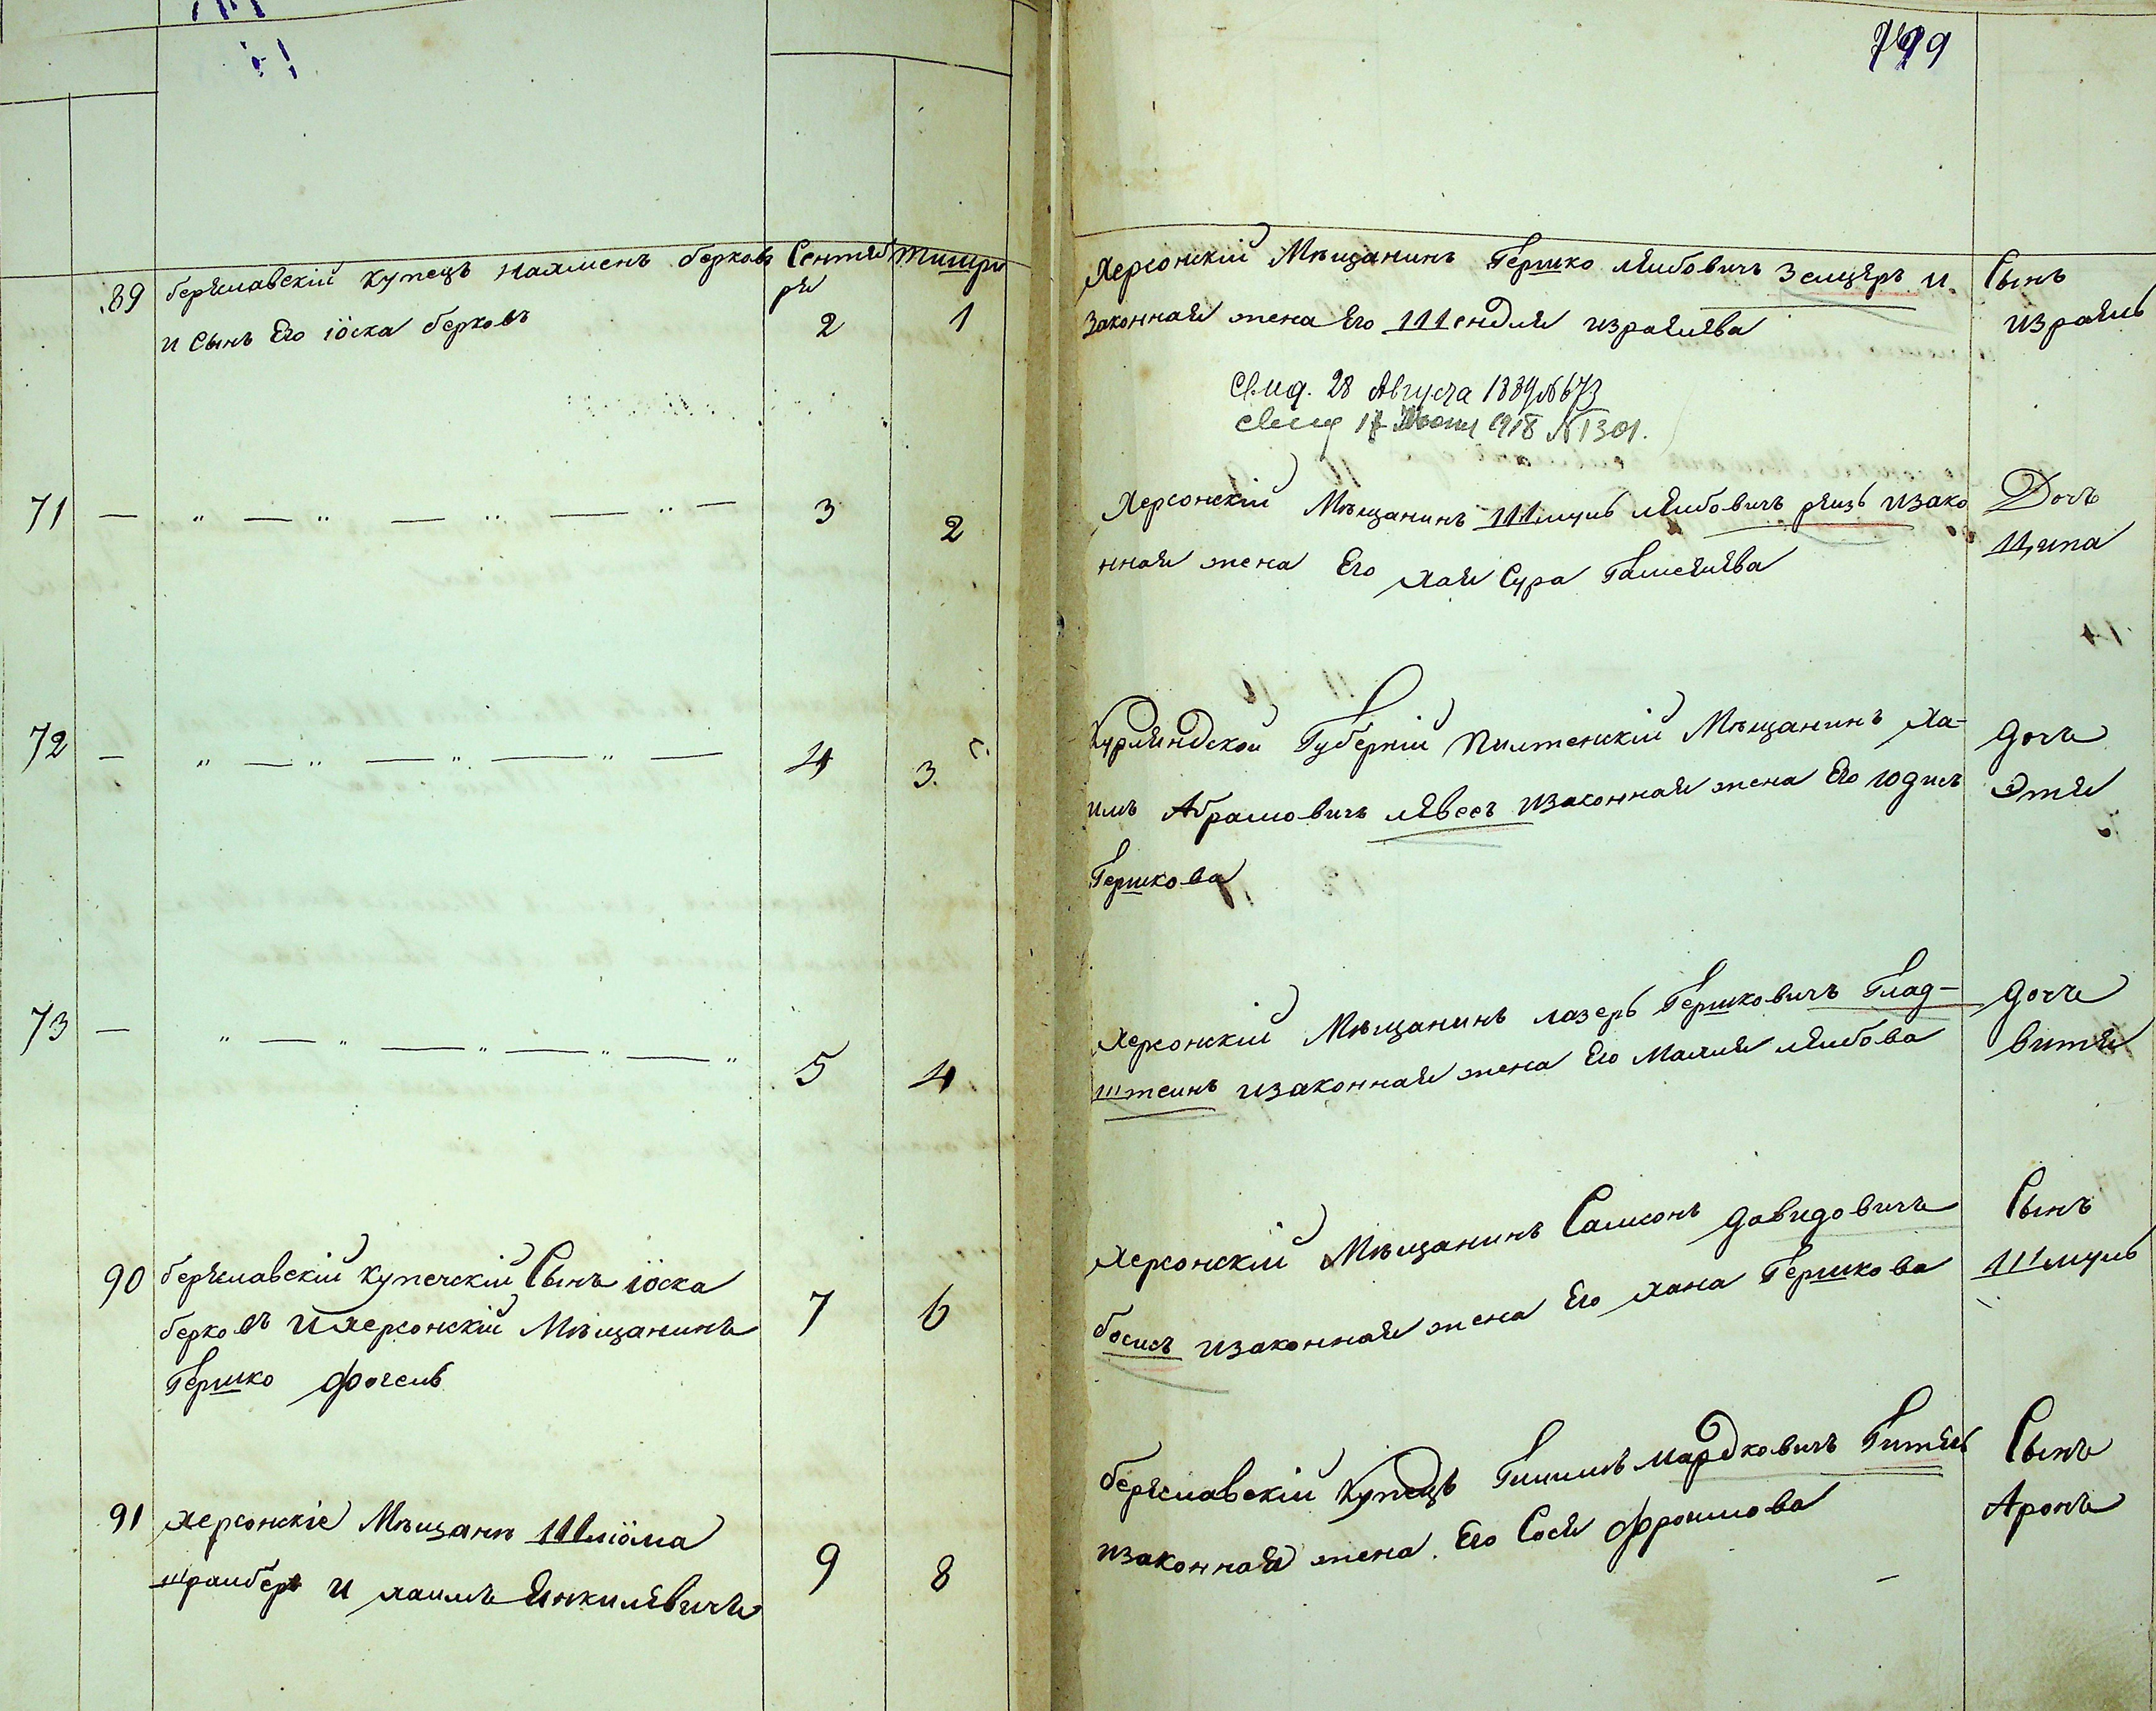 799
89 беряславскій купецъ нахменъ берковъ
и Сынъ Его іоска берковъ
Сентяб
ря
2
Тишри
1
Херсонскій Мѣщанинъ Гершко Лейбовичъ Зельцеръ и
законная жена Его Шендля Израилева
Сынъ
Израиль
Свид. 28 Августа 1889 № 673
Свид 17 Июня 1918 № 1301.
71 — „ — „ — „ — „ —
3
2
Херсонскій Мѣщанинъ Шмуль Лейбовичъ рейзъ изако
нная жена Его хая Сура Гамшеева
Дочь
Ципа
72 — „ — „ — „ — „ —
4
3.
Курляндской Губерніи Пилтенскій Мѣщанинъ Ха-
имъ Абрамовичъ Левесъ изаконная жена Его юдисъ
Гершкова
дочь
Этя
73 — „ — „ — „ — „ — „
5
4
Херсонскій Мѣщанинъ лазеръ Гершковичъ Глад-
штеинъ изаконная жена Его Малия Лейбова
дочь
витя
90 беряславскій купеческій Сынъ іоска
берковъ и херсонскій Мѣщанинъ
Гершко фогель
7
6
Херсонскій Мѣщанинъ Самсонъ Давидовичъ
босисъ изаконная жена Его хана Гершкова
Сынъ
Шмуль
91 херсонскіе Мѣщане Шліома
шрайберъ и хаимъ Янкилевичъ
9
8
беряславскій Купецъ Гилилъ мардковичъ Гитель
изаконная жена Его Сося Фроимова
Сынъ
Аронъ